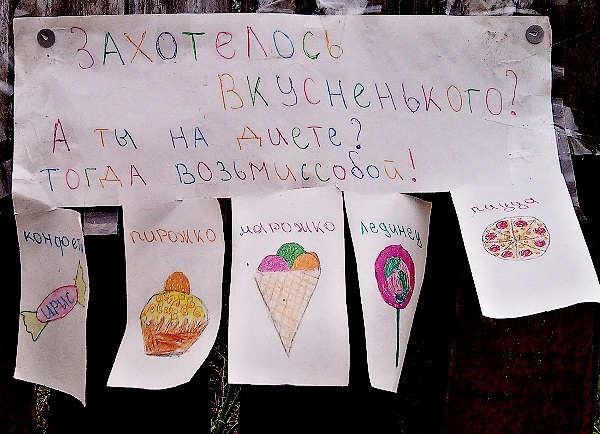 ЗАХОТЕЛОСЬ
ВКУСНЕНЬКОГО?
А ТЫ НА ДИЕТЕ?
ТОГДА ВОЗЬМИССОБОЙ!
конфета
ИРИС
пирожко
марожко
лединец
пицца